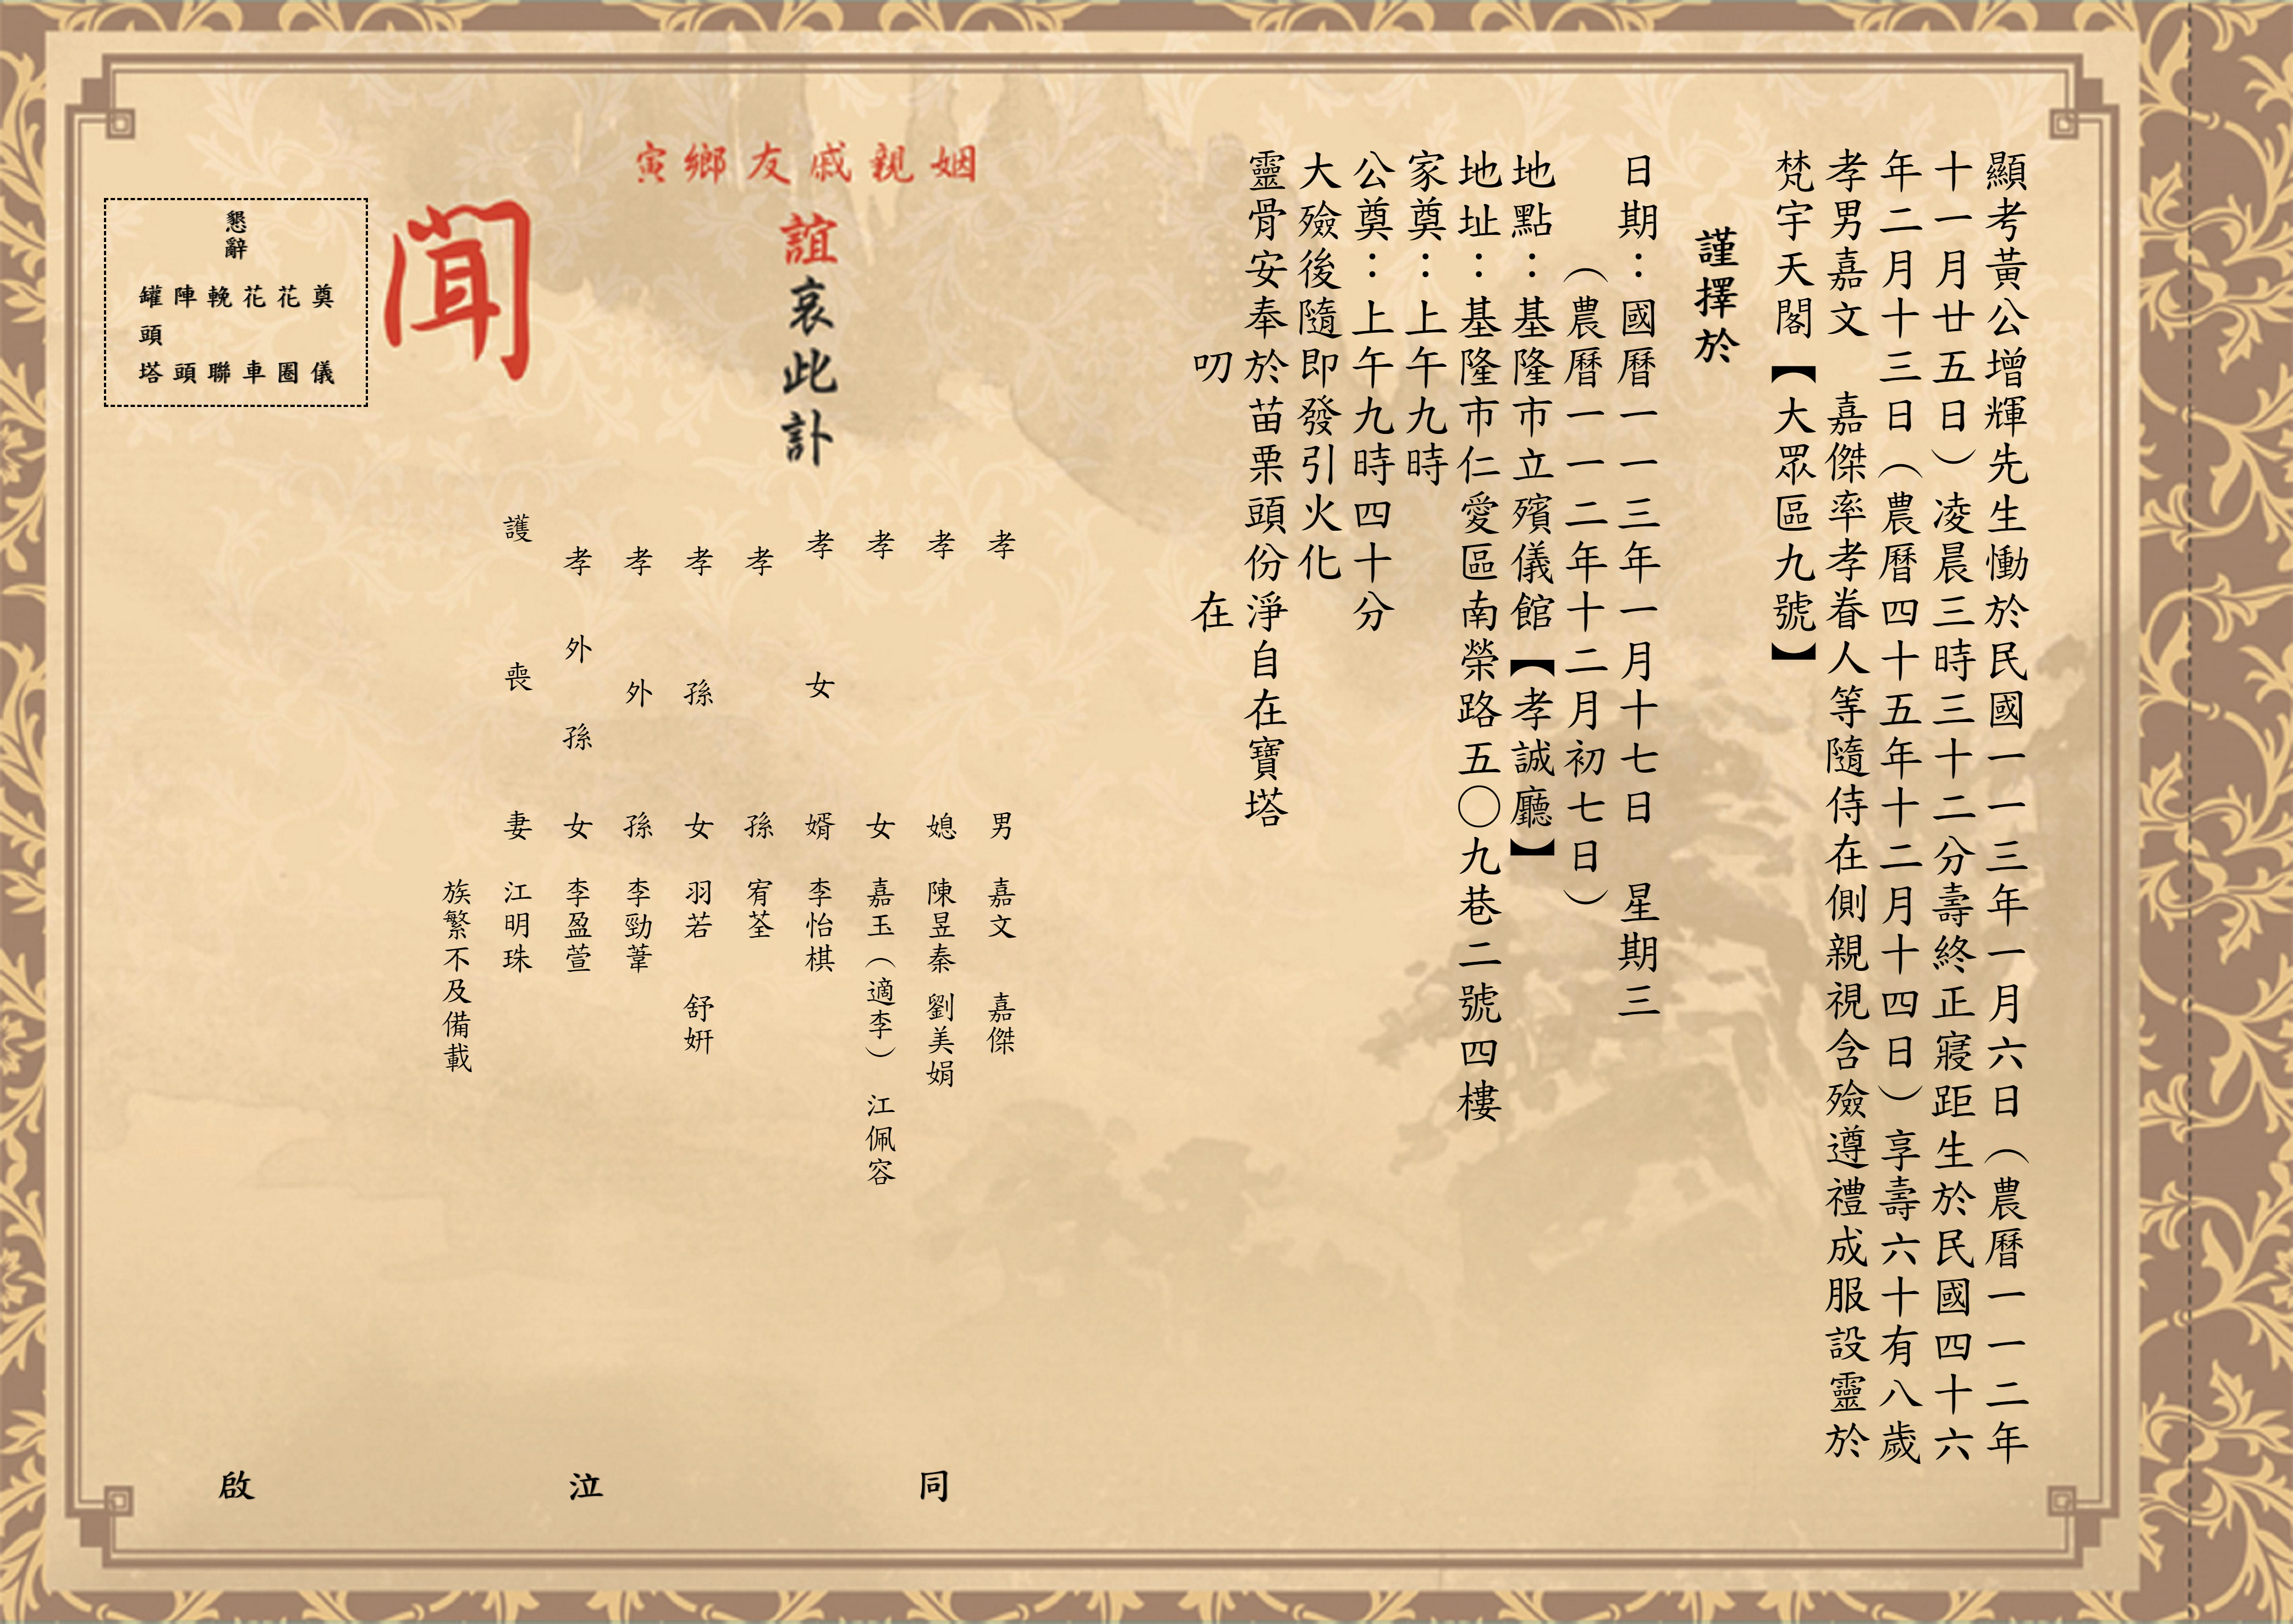 顯考黃公增輝先生慟於民國一一三年一月六日（農曆一一二年
十一月廿五日）凌晨三時三十二分壽終正寢距生於民國四十六
年二月十三日（農曆四十五年十二月十四日）享壽六十有八歲
孝男嘉文　嘉傑率孝眷人等隨侍在側親視含殮遵禮成服設靈於
梵宇天閣【大眾區九號】
謹擇於
日期：國曆一一三年一月十七日　星期三
（農曆一一二年十二月初七日）
地點：基隆市立殯儀館【孝誠廳】
地址：基隆市仁愛區南榮路五〇九巷二號四樓
家奠：上午九時
公奠：上午九時四十分
大殮後隨即發引火化
靈骨安奉於苗栗頭份淨自在寶塔
叨　在
姻親戚友鄉寅
誼哀此訃
聞
孝男　嘉文　嘉傑
孝媳　陳昱秦　劉美娟
孝女　嘉玉（適李）　江佩容
孝女婿　李怡棋
孝孫　宥荃
孝孫女　羽若　舒妍
孝外孫　李勁葦
孝外孫女　李盈萱
護喪妻　江明珠
族繁不及備載
同泣啟
懇辭
奠儀
花圈
花車
輓聯
陣頭
罐頭塔